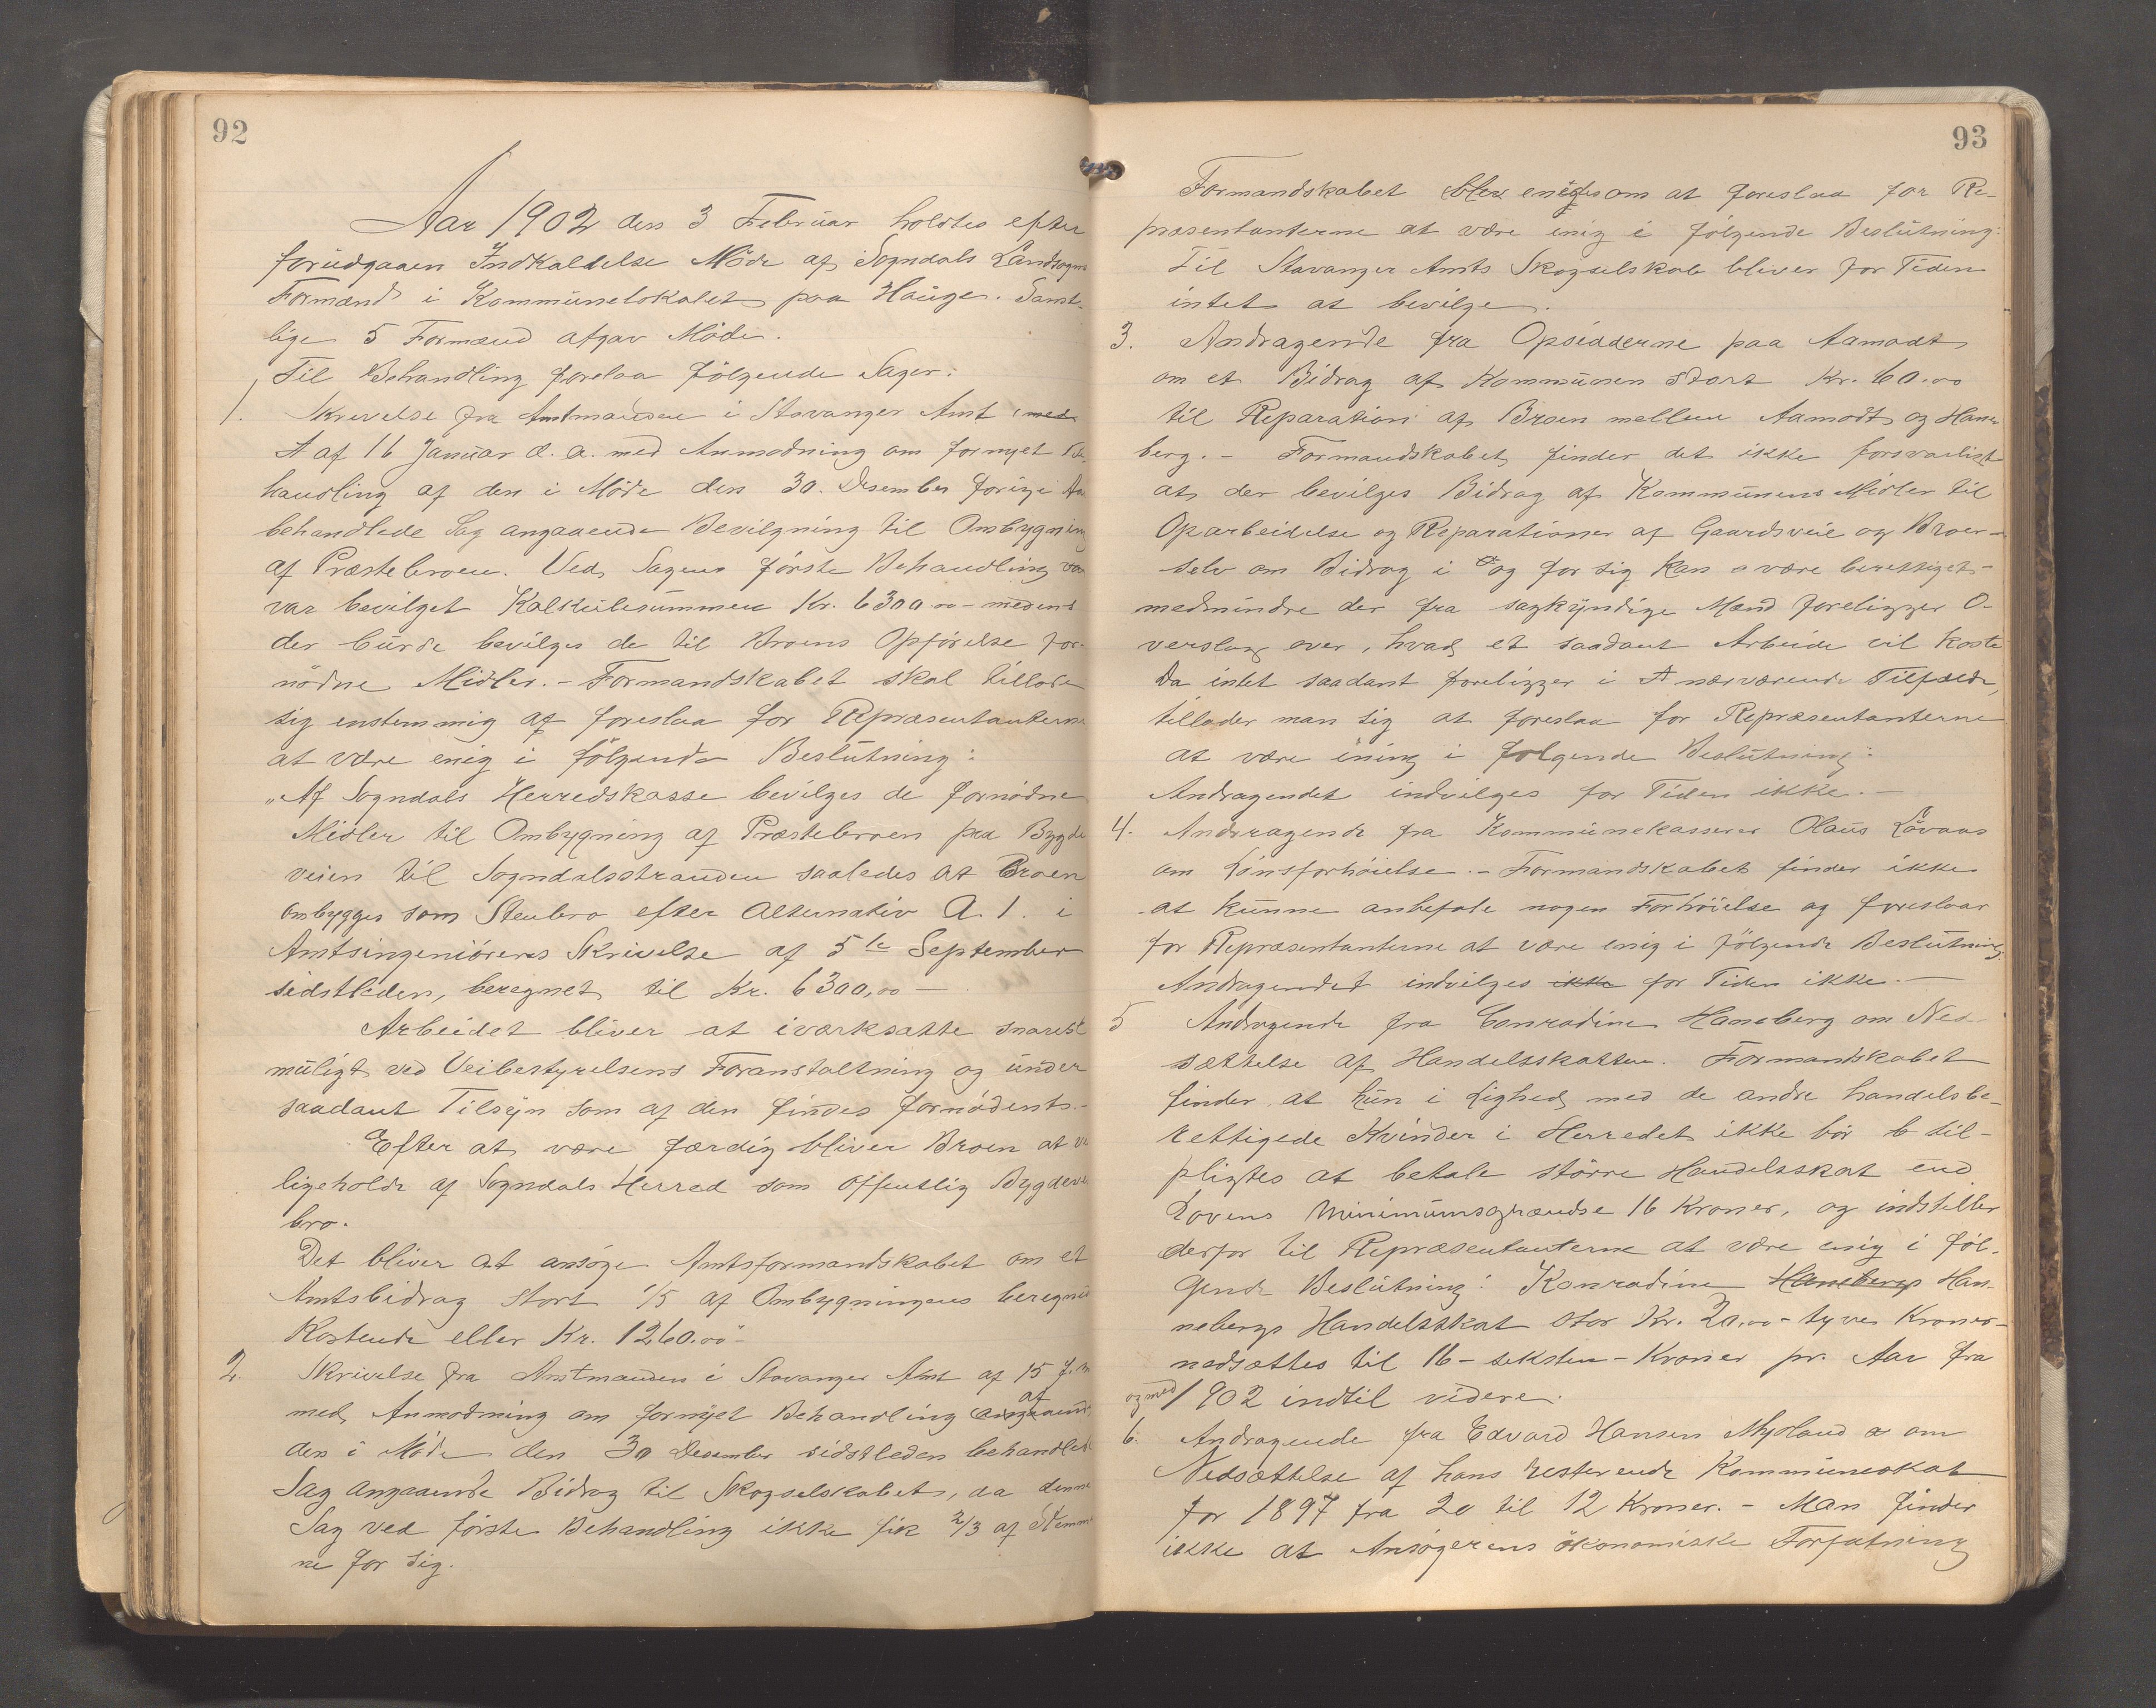 92
Aar 1902 den 3 Februar holdtes efter
forudgaaen Indkaldelse Möde af Sogndals Landsogns
Formænd i Kommunelokalet paa Hauge. Samt-
lige 5 Formænd afgav Möde.
Til Behandling forelaa fölgende Sager:
1. Skrivelse fra Amtmanden i Stavanger Amt med
af 16 Januar d. a. med Anmodning om fornyet Be-
handling af den i Möde den 30. Desember forige Aar
behandlede Sag angaaende Bevilgning til Ombygning
af Præstebroen. Ved Sagens förste Behandling
var bevilget Kalkulesummen Kr. 6300.00 – medens
der burde bevilges de til Broens Opförelse for-
nödne Midler. – Formandskabet skal tillade
sig enstemmig af foreslaa for Repræsentanterne
at være enig i fölgende Beslutning:
„Af Sogndals Herredskasse bevilges de fornödne
Midler til Ombygning af Præstebroen paa Bygde
veien til Sogndalsstranden saaledes at Broen
ombygges som Stenbro efter Alternativ A. 1. i
Amtsingeniörens Skrivelse af 5te September
sidstleden, beregnet til Kr. 6300,00 —
Arbeidet bliver at iværksatte snarest
muligt ved Veibestyrelsens Foranstaltning og under
saadant Tilsyn som af den findes fornödents. –
Efter at være færdig bliver Broen at ve
ligeholde af Sogndals Herred som offentlig Bygdevei
bro.
Det bliver at ansöge Amtsformandskabet om et
Amtsbidrag stort 1/5 af Ombygningens beregnede
Kostende eller Kr. 1260.00 –
2. Skrivelse fra Amtmanden i Stavanger Amt af 15 f. m
med Anmodning om fornyet Behandling angaaende af
den i Möde den 30 Desember sidstleden behandlede
Sag angaaende Bidrag til Skogselskabet, da denne
Sag ved förste Behandling ikke fik 2/3 af Stemmer
ne for sig.
93
Formandskabet blev eniges om at foreslaa for Re-
præsentanterne at være enig i fölgende Beslutning:
Til Stavanger Amts Skogselskab bliver for Tiden
intet at bevilge.
3. Andragende fra Opsidderne paa Aamodt
om et Bidrag af Kommunen stort Kr. 60.00
til Reparation af Broen mellem Aamodt og Hane-
berg. – Formandskabet finder det ikke forsvarligt
at der bevilges Bidrag af Kommunens Midler til
Oparbeidelse og Reparationer af Gaardsveie og Broer –
selv om Bidrag i og for sig kan være berettiget –
medmindre der fra sagkyndige Mænd foreligger O-
verslag over, hvad et saadant Arbeide vil koste
Da intet saadant foreligger i nærværende Tilfælde,
tillader man sig at foreslaa for Repræsentanterne
at være ening i folgende Beslutning:
Andragendet indvilges for Tiden ikke. —
4. Andragende fra Kommunekasserer Olaus Lövaas
om Lönsforhöielse. – Formandskabet finder ikke
at kunne anbefale nogen Forhöielse og foreslaar
for Repræsentanterne at være enig i fölgende Beslutning:
Andragendet indvilges ikke for Tiden ikke. —
5 Andragende fra Conradine Haneberg om Ned-
sættelse af Handelsskatten. Formandskabet
finder at hun i Lighed med de andre handelsbe-
rettigede Kvinder i Herredet ikke bör b til-
pligtes at betale större Handelsskat end
Lovens Minimumsgrændse 16 Kroner, og indstiller
derfor til Repræsentanterne at være enig i föl-
gende Beslutning: Konradine Hanebergs Han-
nebergs Handelsskat stor Kr. 20.00 – tyve Kroner –
nedsættes til 16 – seksten – Kroner pr. Aar fra
og med 1902 indtil videre.
6. Andragende fra Edvard Hansen Mydland om
Nedsættelse af hans resterende Kommuneskat
for 1897 fra 20 til 12 Kroner. – Man finder
ikke at Ansögerens ökonomiske Forfatning